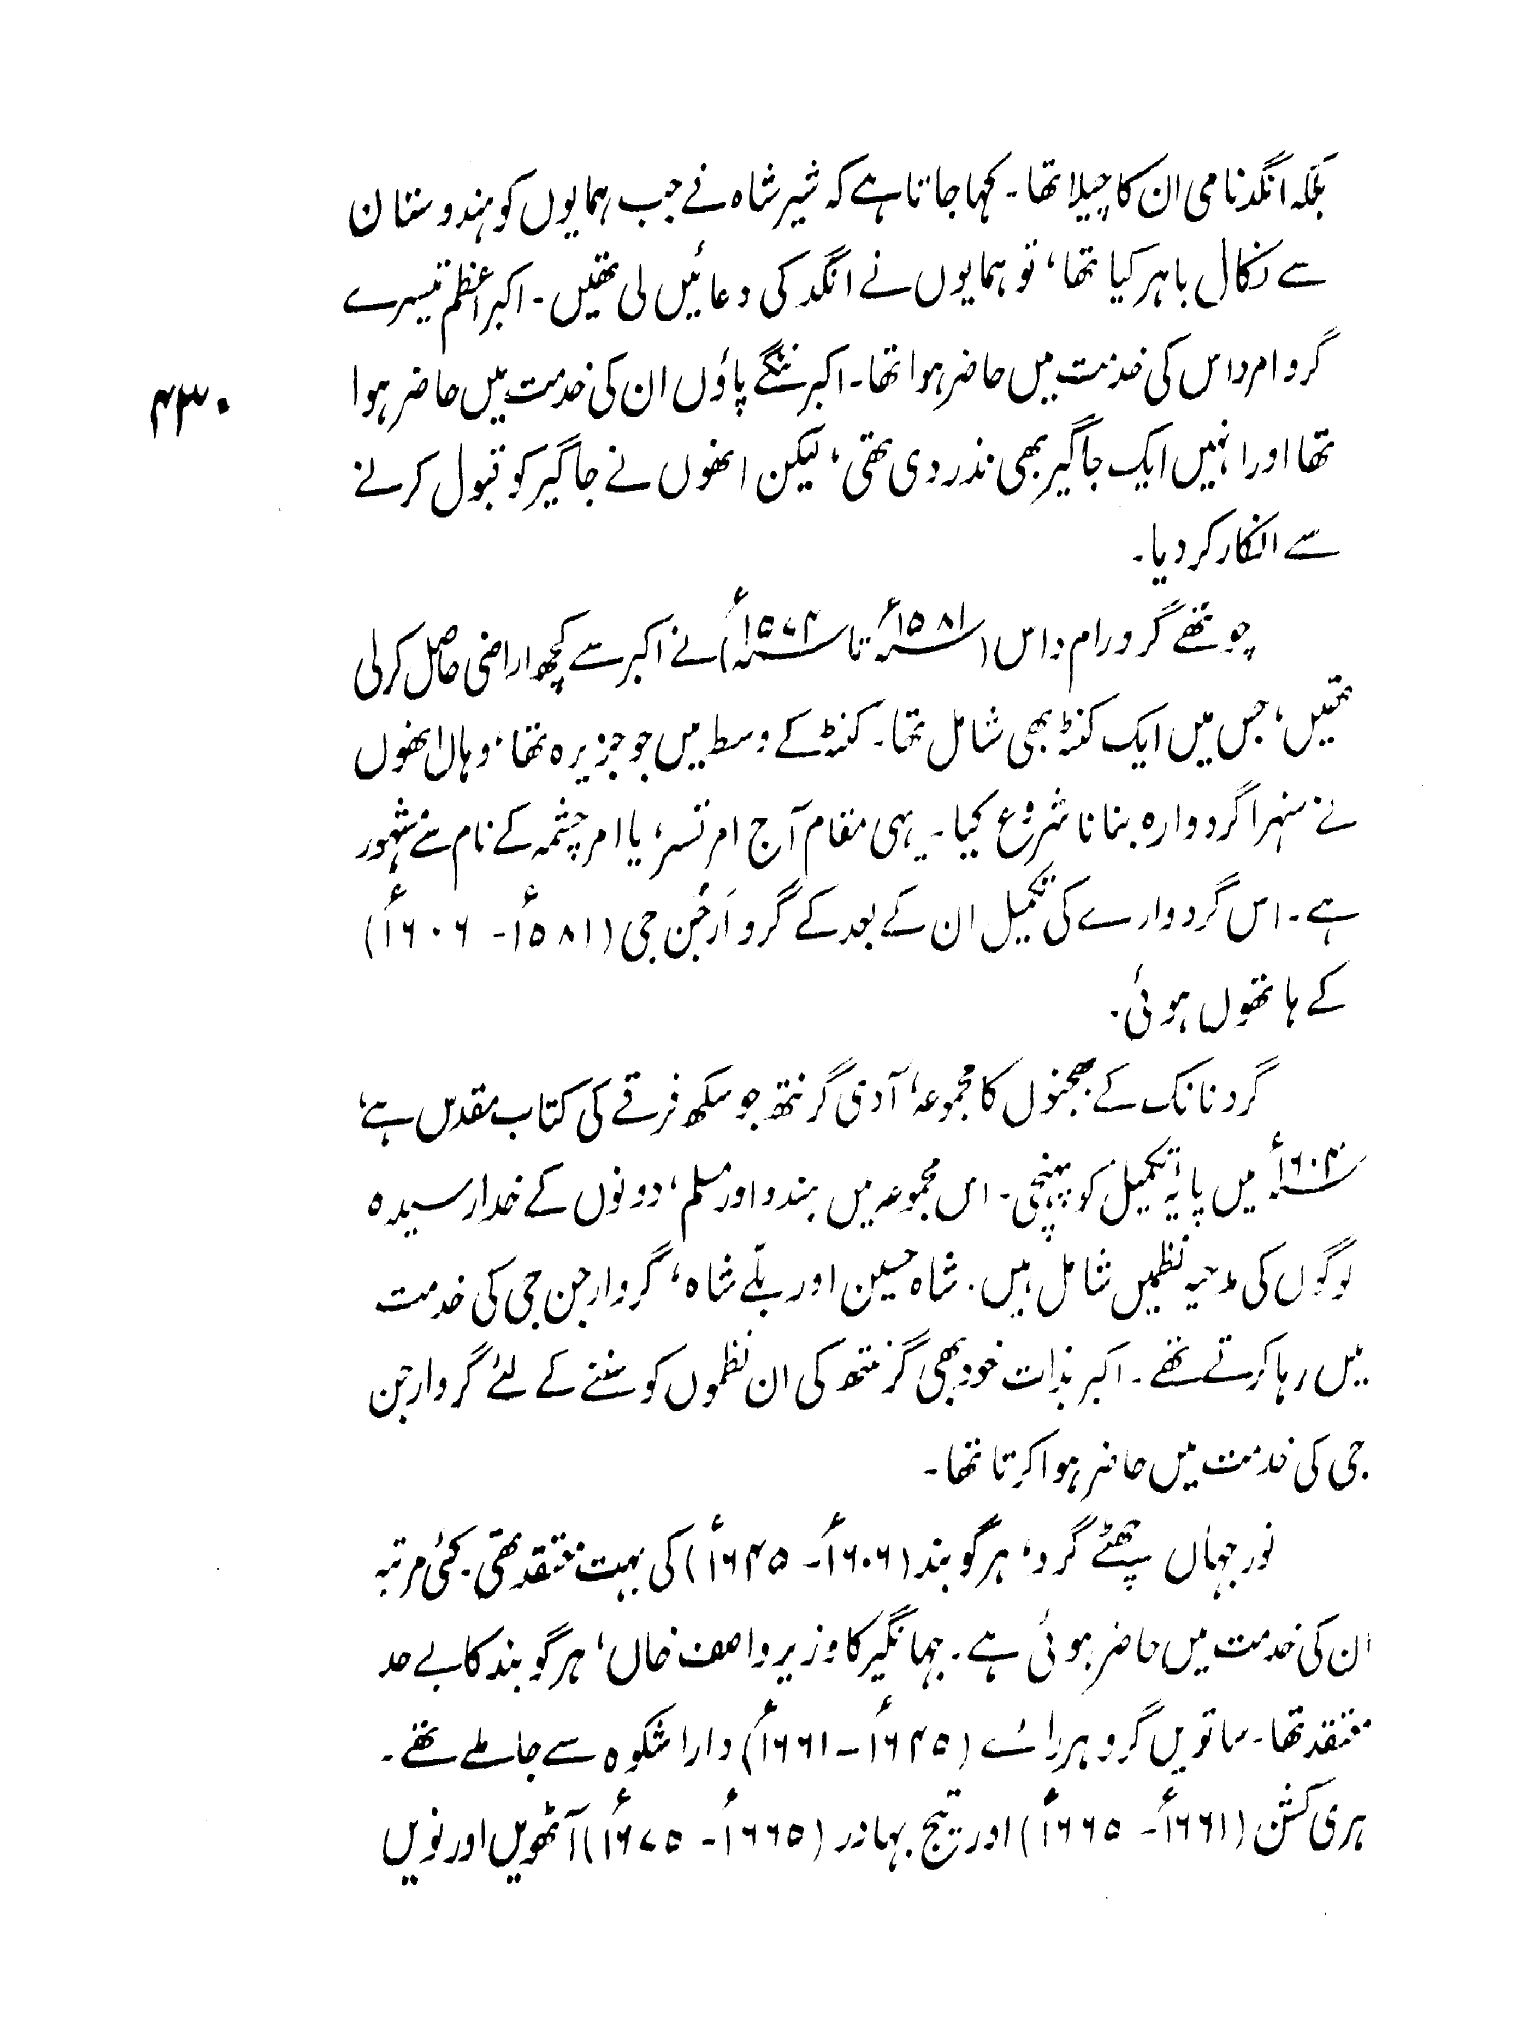 بلکہ انگد نامی ان کا چیلا تھا۔ کہا جاتا ہے کہ شیر شاہ نے جب ہمایوں کو ہندوستان
سے نکال باہر کیا تھا، تو ہمایوں نے انگد کی دعائیں لی تھیں۔ اکبر اعظم تیسرے
گرو امرداس کی خدمت میں حاضر ہوا تھا۔ اکبر ننگے پاؤں ان کی خدمت میں حاضر ہوا
۴۳۰
تھا اور انہیں ایک جاگیر بھی نذر دی تھی، لیکن انھوں نے جاگیر کو قبول کرنے
سے انکار کر دیا۔
چوتھے گرو رام داس (۱۵۸۱ء تا ۱۵۷۴ء) نے اکبر سے کچھ اراضی حاصل کر لی
تھیں، جس میں ایک کنڈ بھی شامل تھا۔ کنڈ کے وسط میں جو جزیرہ تھا، وہاں انھوں
نے سنہرا گردوارہ بنانا شروع کیا۔ یہی مقام آج امرتسر، یا امر چشمہ کے نام سے مشہور
ہے۔ اس گردوارے کی تکمیل ان کے بعد کے گرو اَرجُن جی (۱۵۸۱ء - ۱۶۰۶ء)
کے ہاتھوں ہوئی۔
گرد نانک کے بھجنوں کا مجموعہ، آدی گرنتھ جو سکھ فرقے کی کتاب مقدس ہے،
۱۶۰۴ء میں پایۂ تکمیل کو پہنچی۔ اس مجموعہ میں ہندو اور مسلم، دونوں کے خدا رسیدہ
لوگوں کی مدحیہ نظمیں شامل ہیں۔ شاہ حسین اور بلّے شاہ، گرو ارجن جی کی خدمت
میں رہا کرتے تھے۔ اکبر بذات خود بھی گرنتھ کی ان نظموں کو سننے کے لئے گرو ارجن
جی کی خدمت میں حاضر ہوا کرتا تھا۔
نور جہاں چھٹے گرد، ہرگوبند (۱۶۰۶ء - ۱۶۴۵ء) کی بہت معتقد تھی۔ کئی مرتبہ
ان کی خدمت میں حاضر ہوئی ہے۔ جہانگیر کا وزیر واصف خاں، ہرگوبند کا بے حد
معتقد تھا۔ ساتویں گرو ہررائے (۱۶۴۵ء - ۱۶۶۱ء) دارا شکوہ سے جا ملے تھے۔
ہری کشن (۱۶۶۱ء - ۱۶۶۵ء) اور تیج بہادر (۱۶۶۵ء - ۱۶۷۵ء) آٹھویں اور نویں